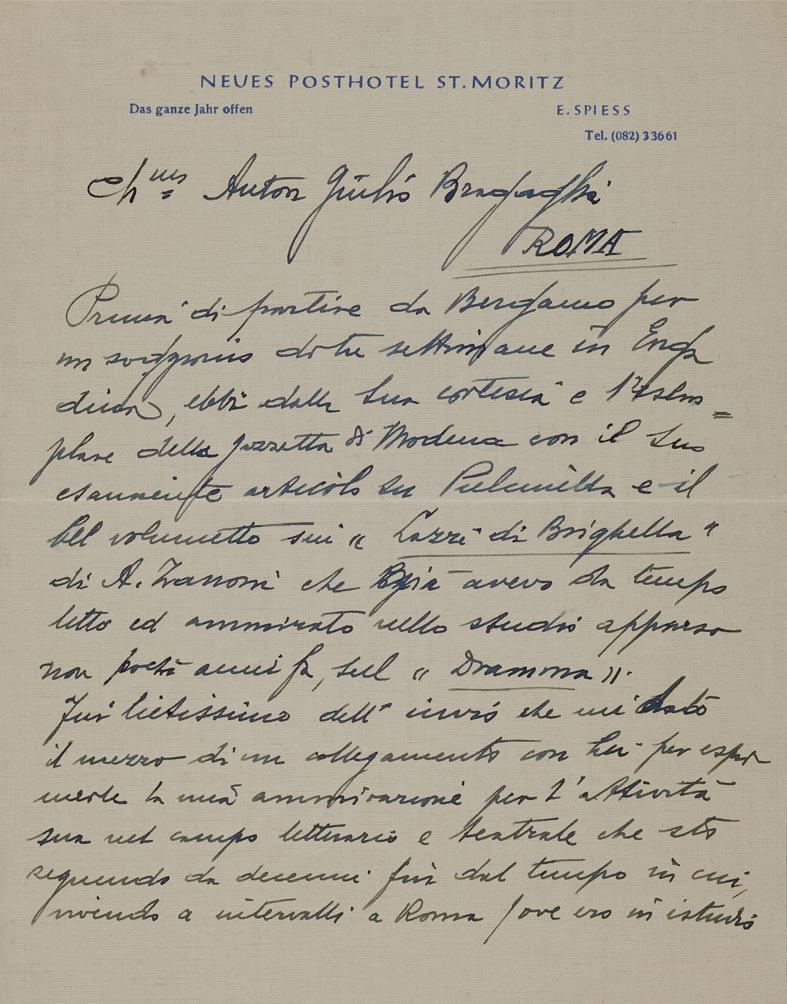 NEUES POSTHOTEL ST. MORITZ
Das ganze Jahr offen
E. SPIESS
Tel. (082) 33661
Ch.mo Anton Giulio Bragaglia
ROMA
Prima di partire da Bergamo per
un soggiorno di tre settimane in Enga
dina, ebbi dalla Sua cortesia e l'esem=
plare della gazzetta di Modena con il Suo
esauriente articolo su Pulcinella e il
bel volumetto sui " Lazzi di Brighella "
di A. Zanoni che già avevo da tempo
letto ed ammirato nello studio apparso
non pochi anni fa, sul " Dramma ".
Fui lietissimo dell' invio che mi dato
il mezzo di un collegamento con Lei per espri
merle la mia ammirazione per l'attività
sua nel campo letterario e teatrale che sto
seguendo da decenni fin dal tempo in cui,
vivendo a intervalli a Roma ( ove ero in istudio